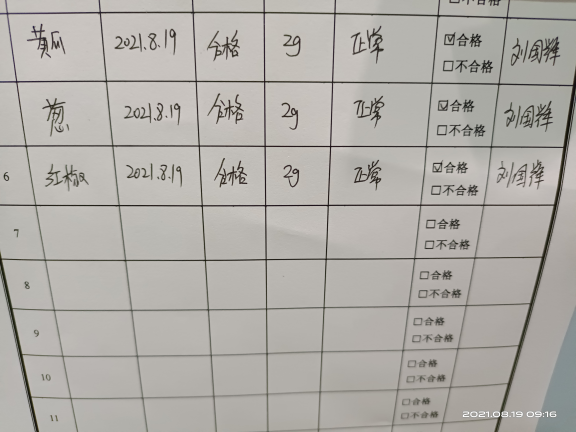 黄瓜 2021.8.19 合格 2g 正常 ☑合格 刘国辉
□不合格
葱 2021.8.19 合格 2g 正常 ☑合格 刘国辉
□不合格
6 红椒 2021.8.19 合格 2g 正常 ☑合格 刘国辉
□不合格
7 □合格
□不合格
8 □合格
□不合格
9 □合格
□不合格
10 □合格
□不合格
11 □合格
□不合格
2021.08.19 09:16